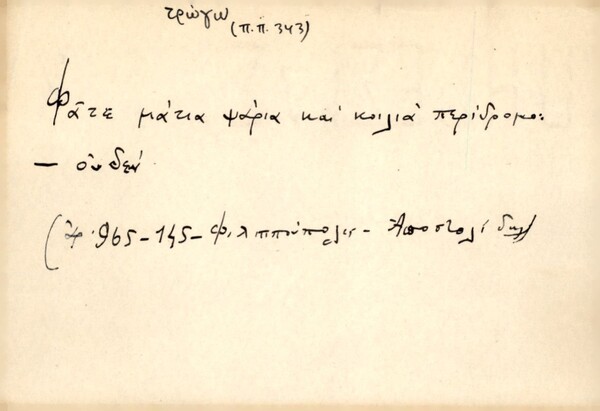 τρώγω
(π.π. 343)
Φᾶτε μάτια ψάρια καί κοιλιά περίδρομο:
— οὐδέν
(ἀρ. 965-145- Φιλιππούπολις - Ἀποστολίδης)